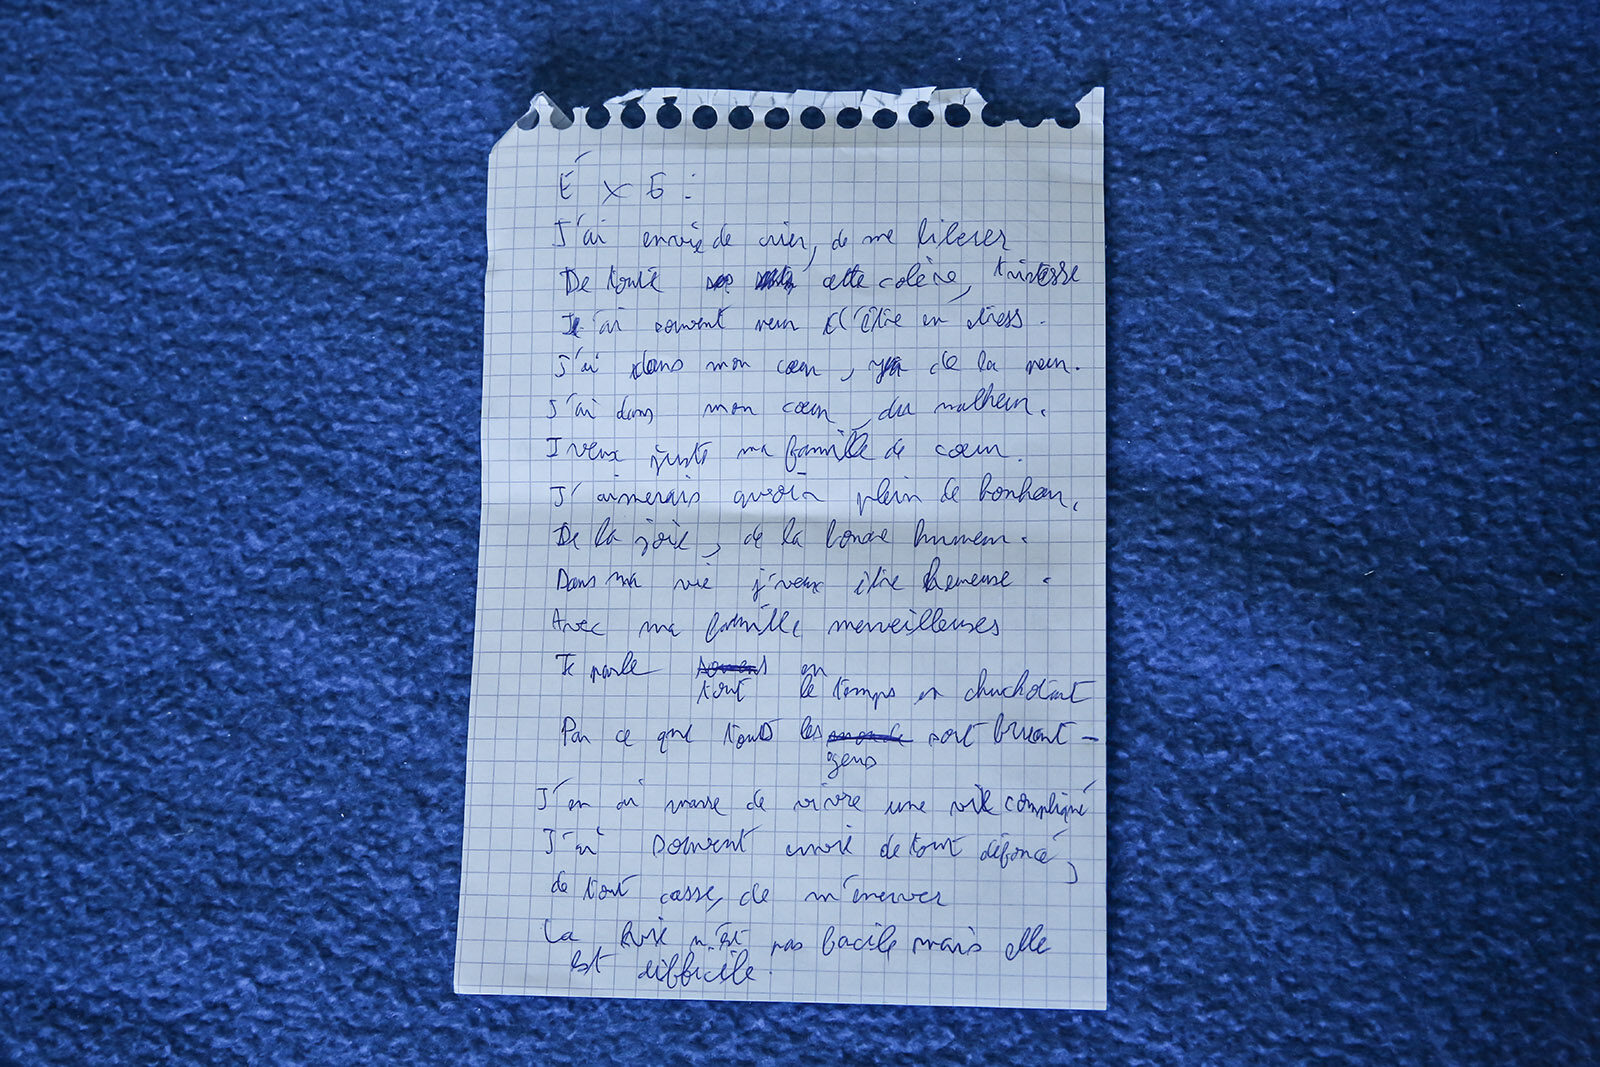 É x 6 :
J'ai envie de crier, de me liberer
De toute cette colère, tristesse
J'ai souvent peur d'être en stress.
J'ai dans mon cœur, de la peur.
J'ai dans mon cœur, du malheur.
J veux juste ma famille de cœur.
J'aimerais avoir plein de bonheur,
De la joie, de la bonne humeur.
Dans ma vie j'veux être heureuse.
Avec ma famille merveilleuses
Je parle en
tout le temps en chuchotant
Par ce que touts les sont bruant -
gens
J'en ai marre de vivre une vie compliqué
J'ai souvent envie de tout défoncé,
de tout casse, de m'énerver
La vie n'est pas facile mais elle
est difficile.